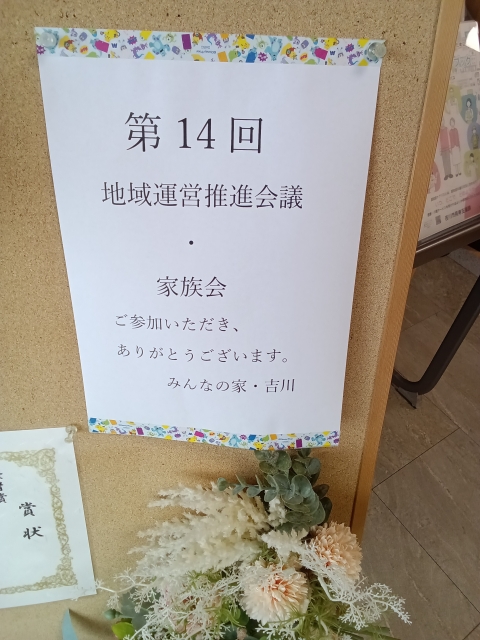 第14回
地域運営推進会議
・
家族会
ご参加いただき、
ありがとうございます。
みんなの家・吉川
賞状